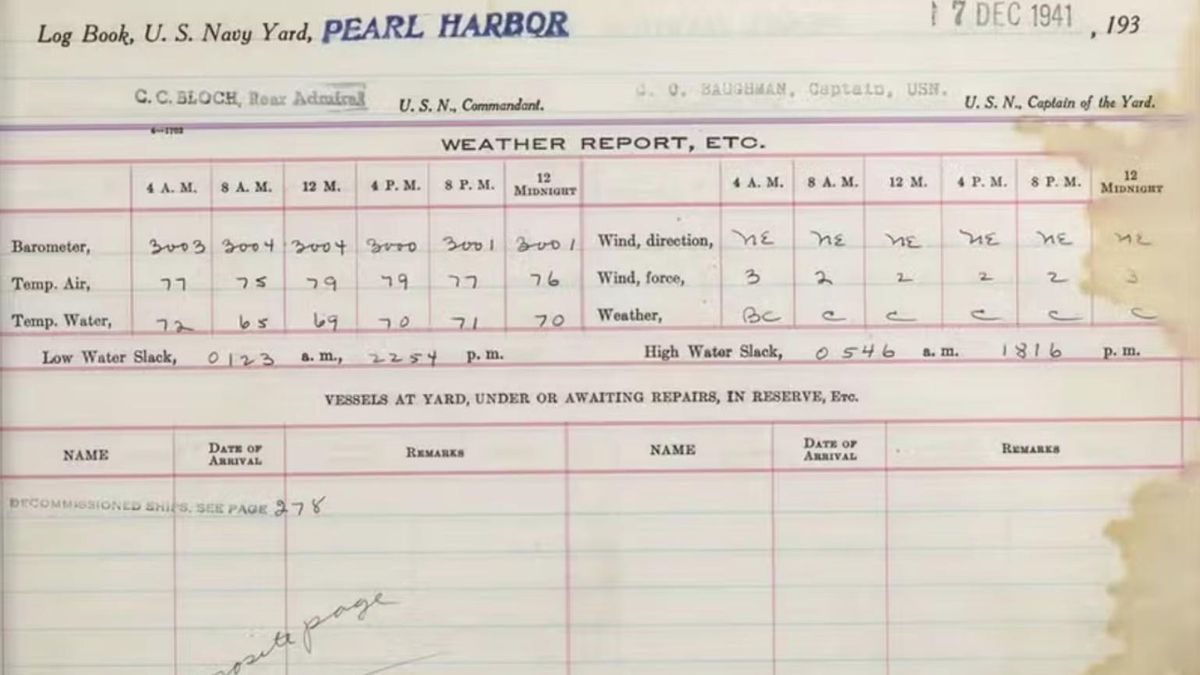 Log Book, U. S. Navy Yard, PEARL HARBOR 17 DEC 1941, 193
C. C. BLOCH, Rear Admiral U. S. N., Commandant. C. C. BAUGHMAN, Captain, USN. U. S. N., Captain of the Yard.
6—1702
WEATHER REPORT, ETC.
4 A. M. 8 A. M. 12 M. 4 P. M. 8 P. M. 12 MIDNIGHT 4 A. M. 8 A. M. 12 M. 4 P. M. 8 P. M. 12 MIDNIGHT
Barometer, 3003 3004 3004 3000 3001 3001 Wind, direction, NE NE NE NE NE NE
Temp. Air, 77 75 79 79 77 76 Wind, force, 3 2 2 2 2 3
Temp. Water, 72 65 69 70 71 70 Weather, BC C C C C C
Low Water Slack, 0123 a. m., 2254 p. m. High Water Slack, 0546 a. m. 1816 p. m.
VESSELS AT YARD, UNDER OR AWAITING REPAIRS, IN RESERVE, Etc.
NAME DATE OF ARRIVAL REMARKS NAME DATE OF ARRIVAL REMARKS
DECOMMISSIONED SHIPS, SEE PAGE 278
posite page